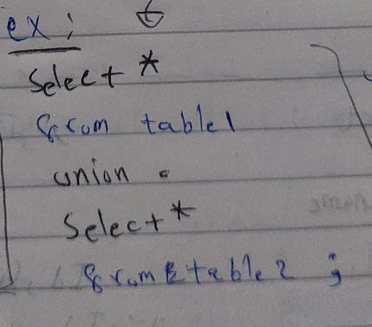 ex:
Select *
from table1
union
Select *
from table2 ;